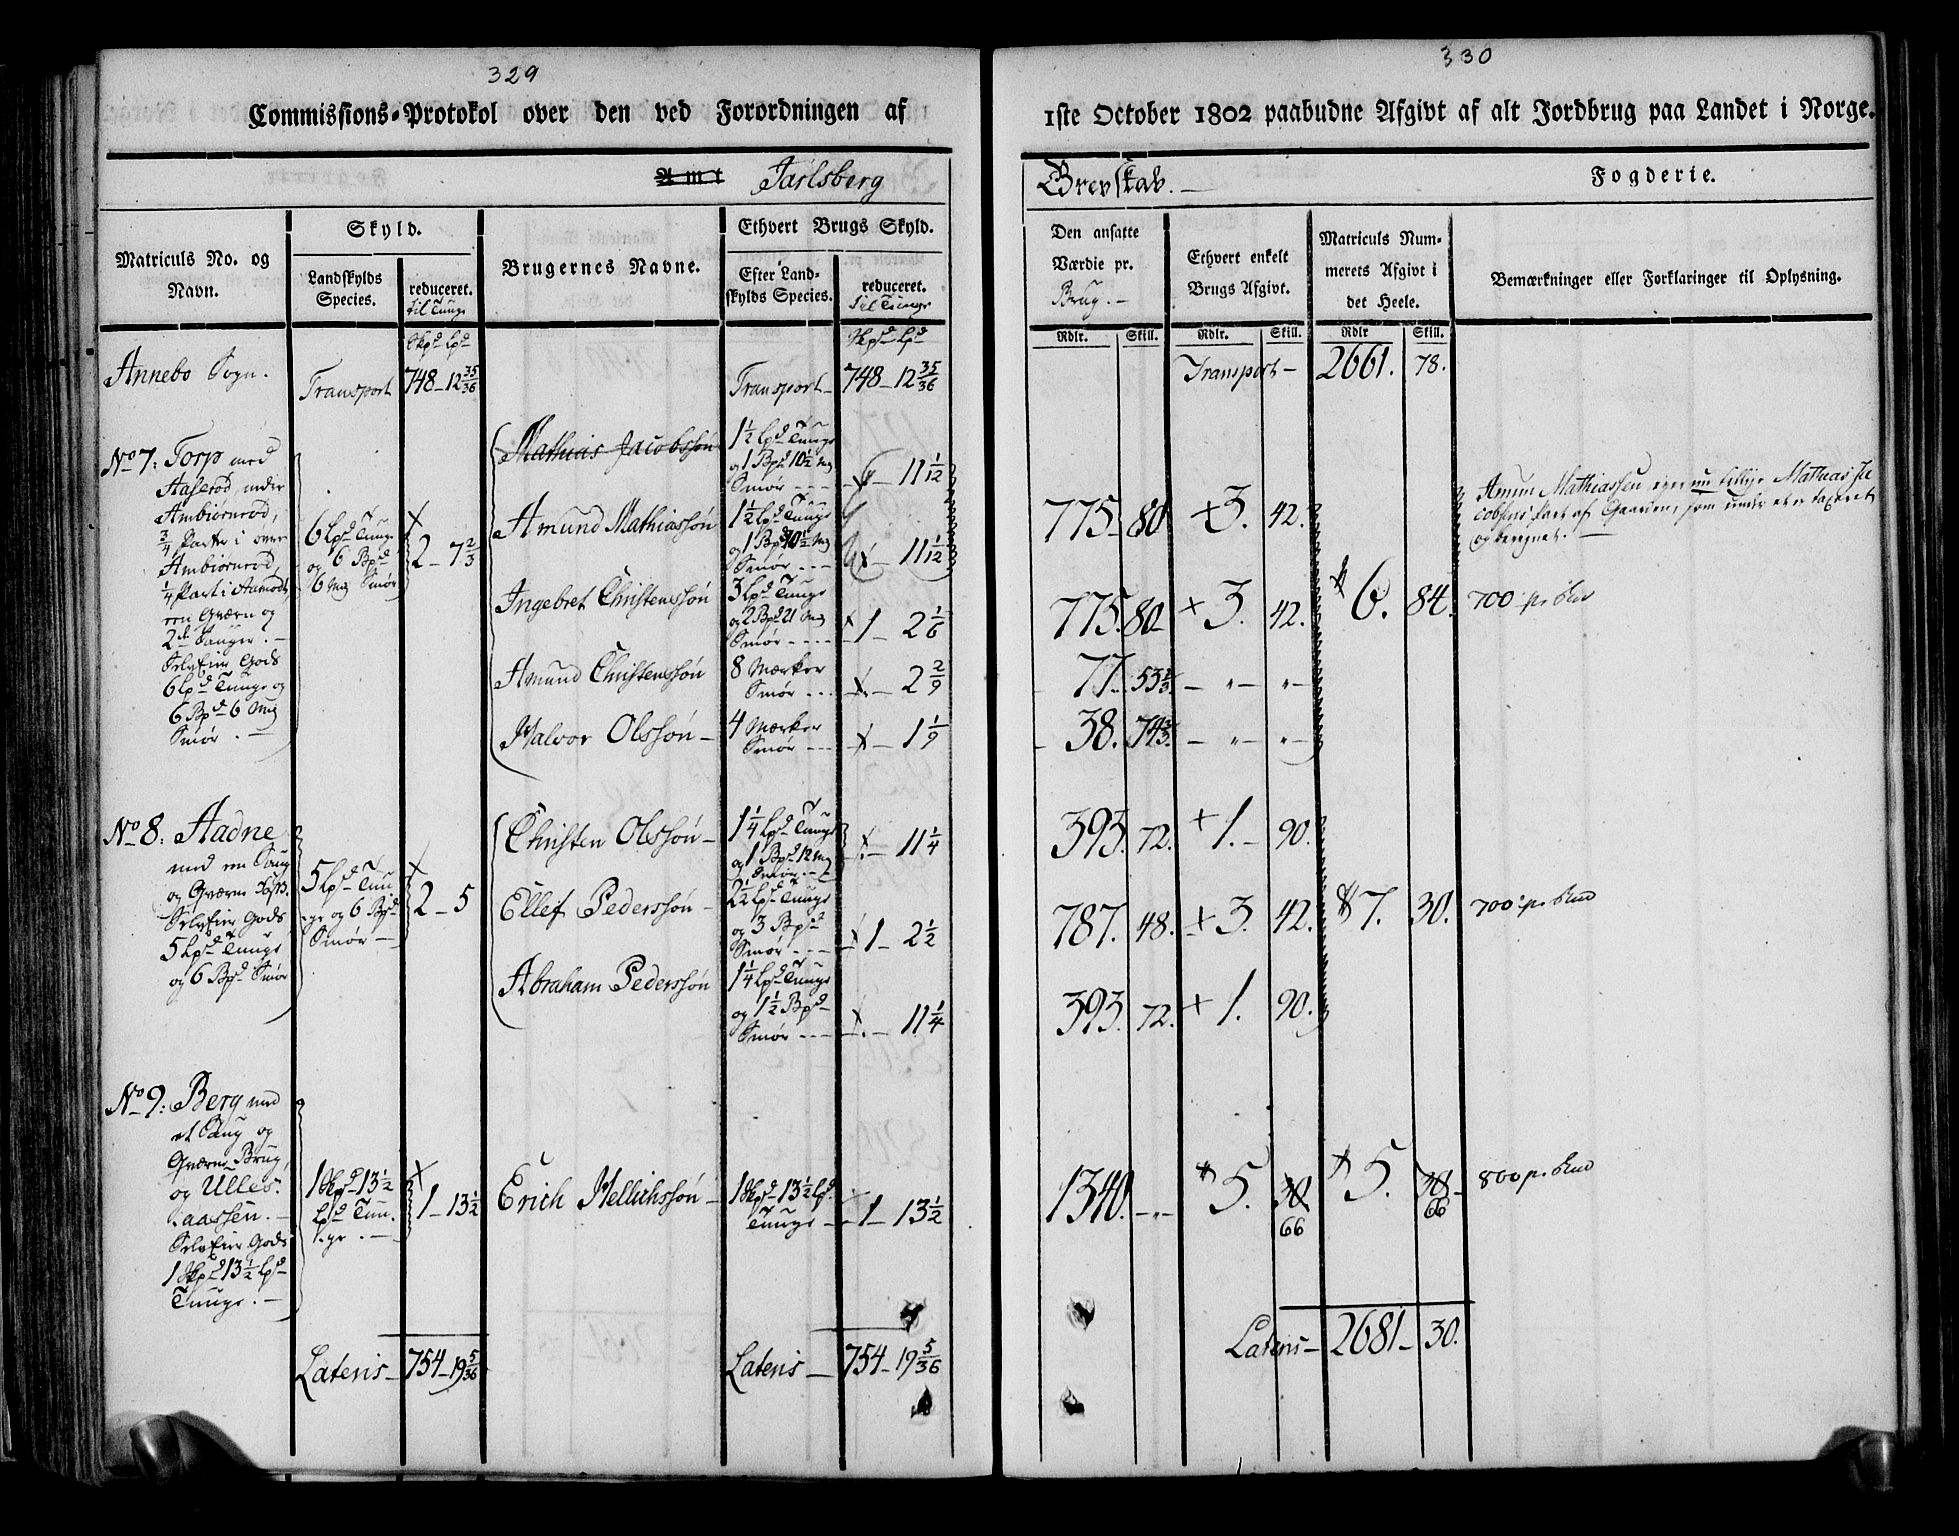 329
Commissions-Protokol over den ved Forordningen af
Amt Jarlsberg
Matriculs No. og Navn.
Skyld.
Landskylds Species.
reduceret. til Tunge
Brugernes Navne.
Ethvert Brugs Skyld.
Efter Landskylds Species.
reduceret. til Tunge
Skpd Lpd
Skpd Lpd
Annebo Sogn.
Transport
748 - 12 35/36
Transport -
748 - 12 35/36
No 7: Torp med
Aaserød, under
Ambiørnrød,
3/4 Parter i øvre
Ambiørnrød,
1/4 Part i Aamodt,
een Qværn og
2de Sauger. -
SelvEier Gods
6 Lpd Tunge og
6 Bpd 6 Mg
Smør. -
6 Lpd Tunge
og 6 Bpd
6 Mg Smør
2 - 7 2/3
Mathias Jacobssøn
1 1/2 Lpd Tunge
og 1 Bpd 10 1/2 Mg
Smør - - -
11 1/12
Amund Mathiassøn
1 1/2 Lpd Tunge
og 1 Bpd 10 1/2 Mg
Smør - - -
11 1/12
Ingebret Christenssøn
3 Lpd Tunge
og 2 Bpd 21 Mg
Smør - - - -
1 - 2 1/6
Amund Christenssøn
8 Mærker
Smør - - -
2 2/9
Halvor Olssøn -
4 Mærker
Smør - - -
1 1/9
No 8: Aadne
med en Saug
og Qværn
SelvEier Gods
5 Lpd Tunge
og 6 Bpd Smør
5 Lpd Tun-
ge og 6 Bpd
Smør -
2 - 5
Christen Olssøn -
1 1/4 Lpd Tunge
og 1 Bpd 12 Mg
Smør - -
11 1/4
Ellef Pederssøn -
2 1/2 Lpd Tunge
og 3 Bpd
Smør - - - -
1 - 2 1/2
Abraham Pederssøn
1 1/4 Lpd Tunge
og 1 1/2 Bpd
Smør - - -
11 1/4
No 9: Berg med
et Saug og
Qværn Brug,
og Ulles-
aassen. -
SelvEier Gods
1 Skpd 13 1/2 Lpd
Tunge. -
1 Skpd 13 1/2
Lpd Tun-
ge. -
1 - 13 1/2
Erich Hellichssøn -
1 Skpd 13 1/2 Lpd
Tunge -
1 - 13 1/2
Lateris -
754 - 19 5/36
Lateris -
754 - 19 5/36
330
1ste October 1802 paabudne Afgivt af alt Jordbrug paa Landet i Norge.
Grevskab. -
Fogderie.
Den ansatte Værdie pr. Brug. -
Ethvert enkelt Brugs Afgivt.
Matriculs Nummerets Afgivt i det Heele.
Bemærkninger eller Forklaringer til Oplysning.
Rdlr. Skill.
Rdlr. Skill.
Rdlr Skill.
Transport - 2661. 78.
775. 80 + 3. 42.
Amun Mathiassen eyer nu tillige Mathias Ja
cobsens Part af Gaarden, som under et er taxeret
og beregnet. -
775. 80 + 3. 42. 6. 84. 700 pr
77. 53 1/3 - " - " -
38. 74 2/3 - " - " -
393. 72. + 1. - 90.
787. 48. + 3. 42. 7. 30. 700 pr
393. 72. + 1. 90.
1340. - " - 5. 30 5. 30
66 66
800 pr
Lateris - 2681 - 30.